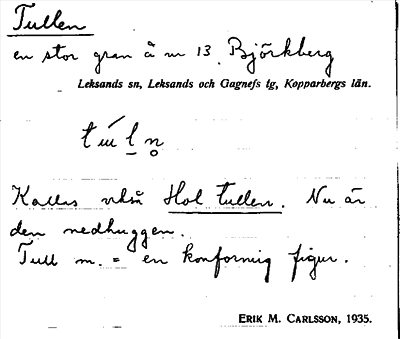 Tullen
en stor gran å nr 13 Björkberg
Leksands sn, Leksands och Gagnefs tg, Kopparbergs län.
Kallas också Hol tullen. Nu är
den nedhuggen.
Tull m. = en konformig figur.
ERIK M. CARLSSON, 1935.